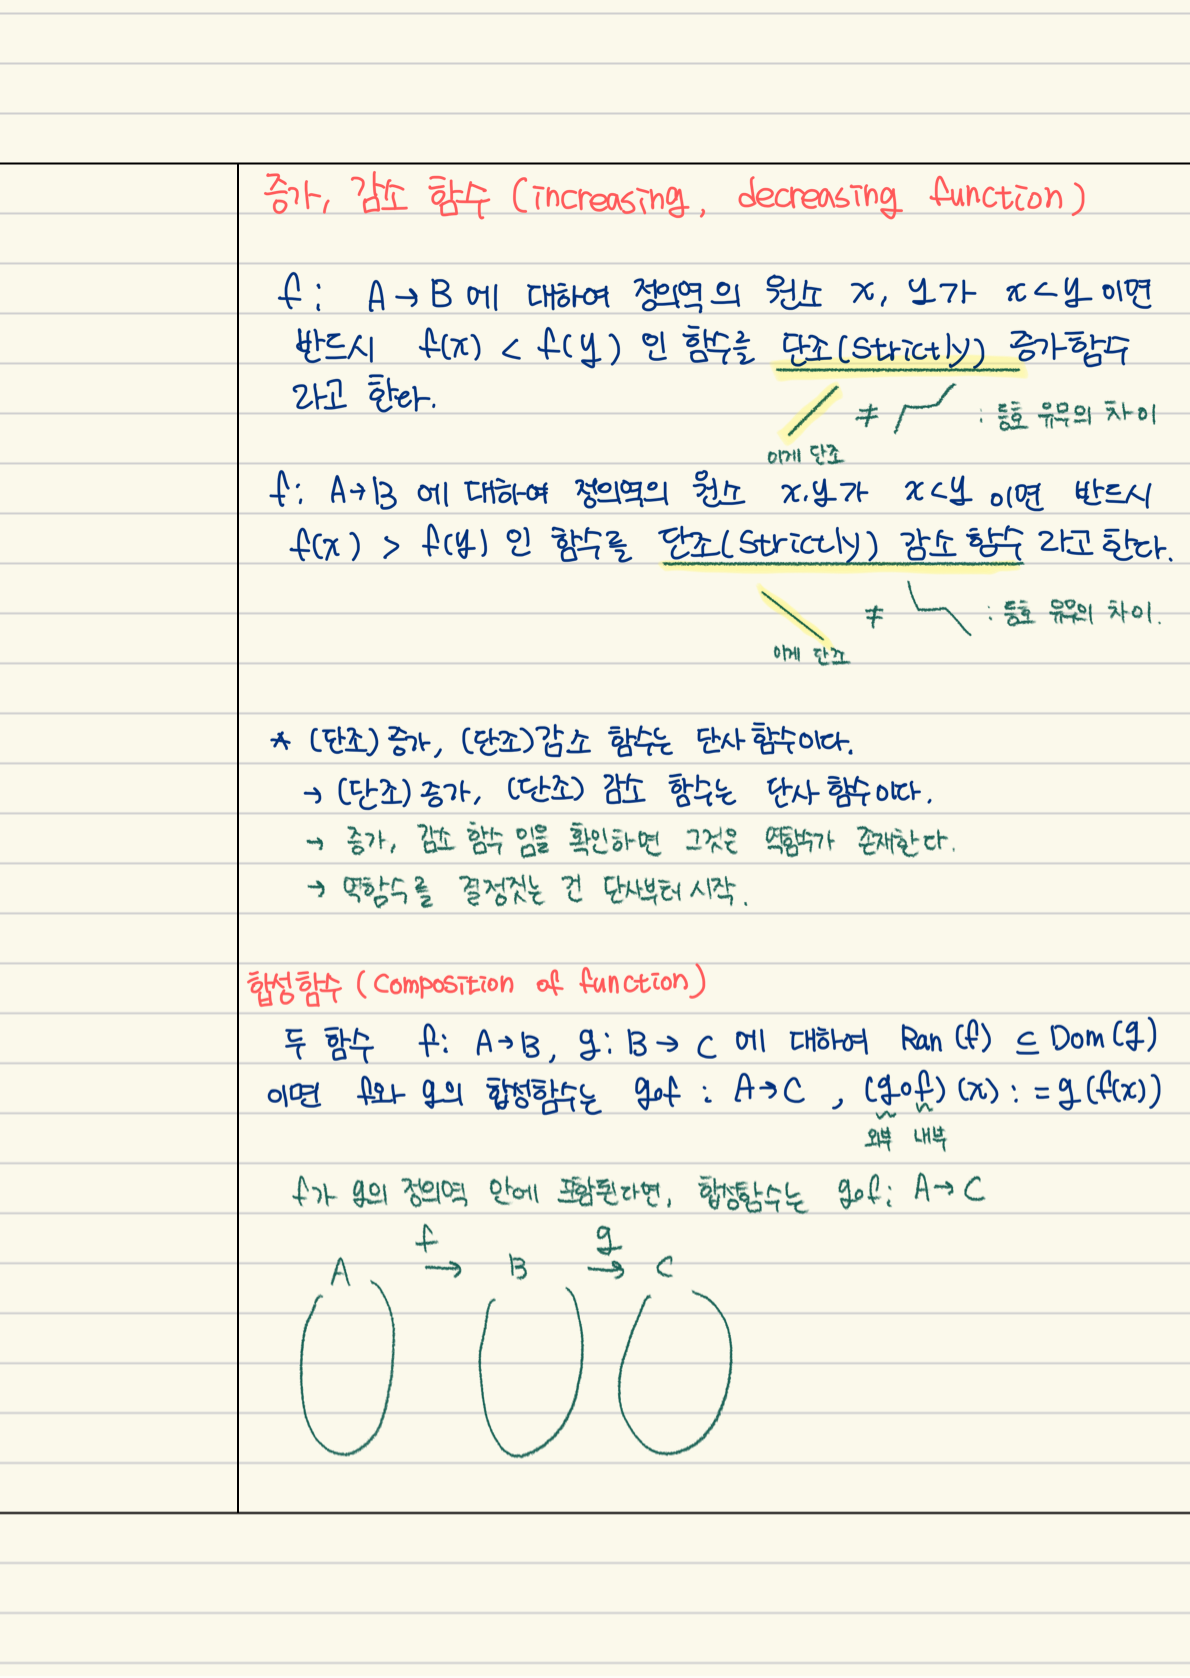 증가, 감소 함수 (increasing, decreasing function)
f : A → B 에 대하여 정의역의 원소 x, y가 x < y 이면
반드시 f(x) < f(y) 인 함수를 단조(Strictly) 증가함수
라고 한다.
≠ : 등호 유무의 차이
이게 단조
f : A → B 에 대하여 정의역의 원소 x, y가 x < y 이면 반드시
f(x) > f(y) 인 함수를 단조(Strictly) 감소 함수 라고 한다.
≠ : 등호 유무의 차이.
이게 단조
* (단조) 증가, (단조) 감소 함수는 단사 함수이다.
→ (단조) 증가, (단조) 감소 함수는 단사 함수이다.
→ 증가, 감소 함수 임을 확인하면 그것은 역함수가 존재한다.
→ 역함수를 결정짓는 건 단사부터 시작.
합성함수 (Composition of function)
두 함수 f : A → B, g : B → C 에 대하여 Ran (f) ⊆ Dom (g)
이면 f와 g의 합성함수는 g∘f : A → C , (g∘f) (x) := g (f(x))
외부 내부
f가 g의 정의역 안에 포함된다면, 합성함수는 g∘f : A → C
f g
A → B → C